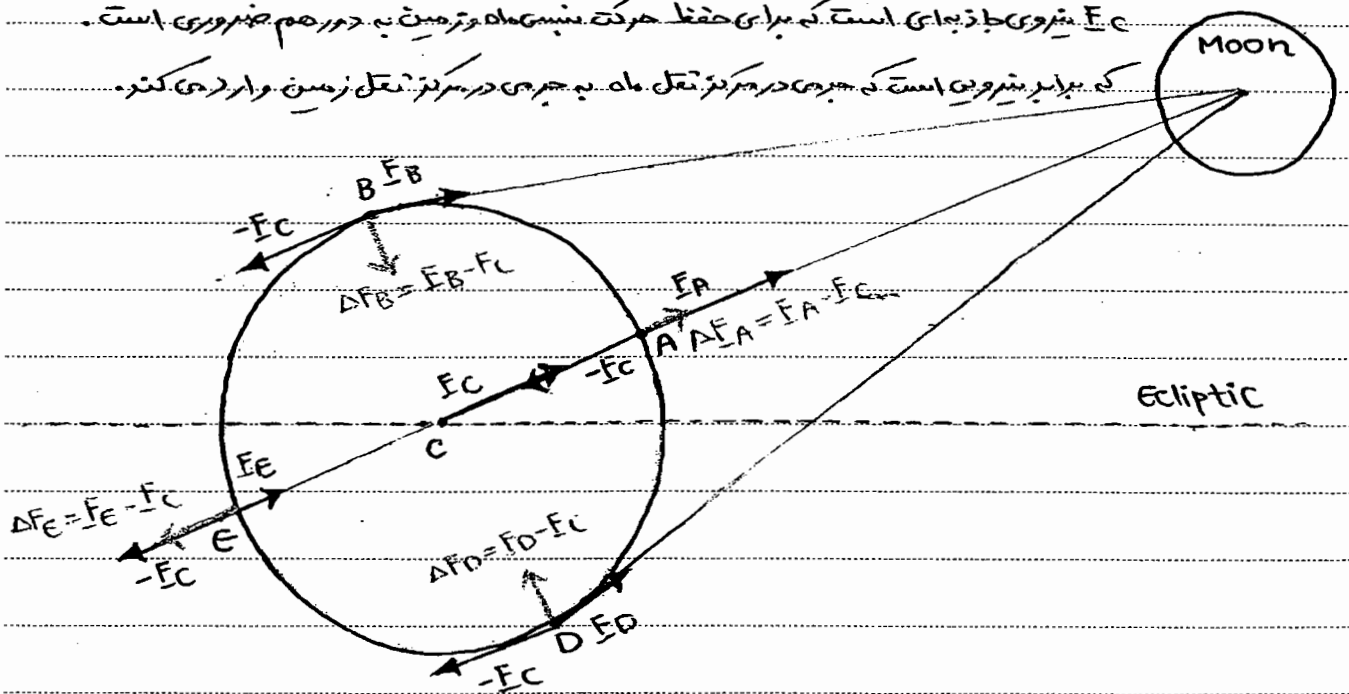 F̲c نیروی جاذبه‌ای است که برای حفظ حرکت نسبی ماه و زمین به دور هم ضروری است.
Moon
که برابر نیرویی است که جرمی در مرکز ثقل ماه به جرمی در مرکز ثقل زمین وارد می کند.
B F̲B
-F̲c
ΔFB = F̲B-Fc
F̲A
ΔF̲A = F̲A-F̲c
A
-F̲c
F̲c
Ecliptic
C
F̲E
ΔFE = F̲E-F̲c
E
-F̲c
ΔFD = FD-F̲c
D F̲D
-F̲c